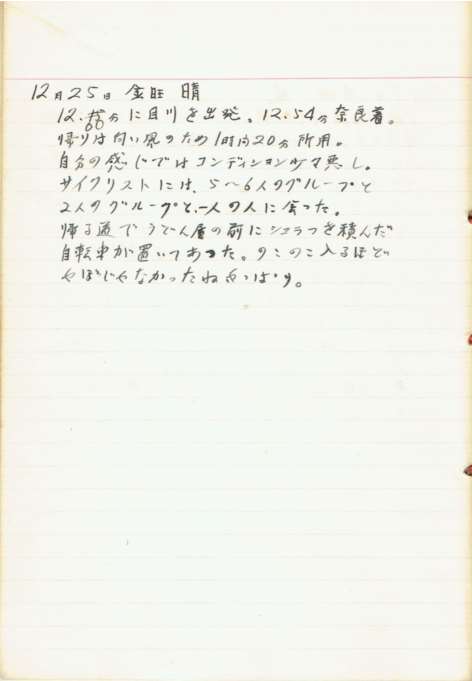 12月25日 金旺 晴
12.00分に目川を出発。12.54分奈良着。
帰りは向い風のため1時間20分所用。
自分の感じではコンディション少々悪し。
サイクリストには、5～6人のグループと
2人のグループと、一人の人に会った。
帰る道でうどん屋の前にシュラフを積んだ
自転車が置いてあった。のこのこ入るほど
やぼじゃなかったねやっぱり。